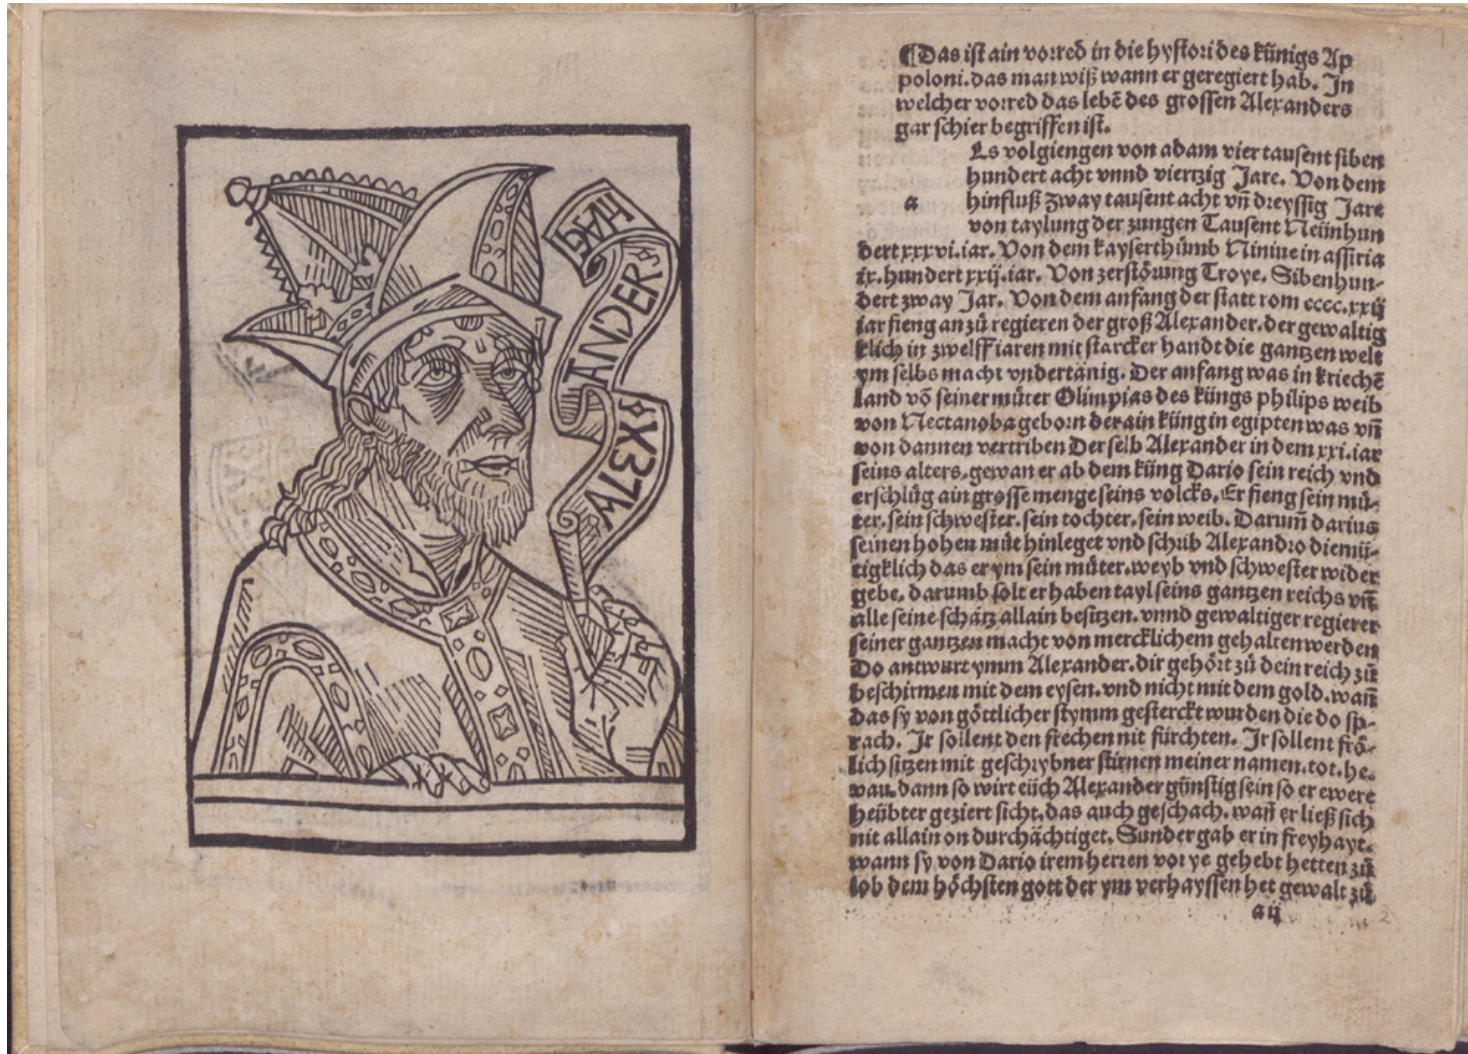 ALEX
ANDER
MAG
¶Das ist ain vorred in die hystori des künigs Ap
poloni. das man wiß wann er geregiert hab. In
welcher vorred das lebē des grossen Alexanders
gar schier begriffen ist.
Es volgiengen von adam vier tausent siben
hundert acht vnnd viertzig Jare. Von dem
a hinfluß zway tausent acht vñ dreyssig Jare
von taylung der zungen Tausent Neünhun
dert xxxvi. iar. Von dem kayserthůmb Niniue in assiria
ix. hundert xxij. iar. Von zerstörung Troye. Sibenhun-
dert zway Jar. Von dem anfang der statt rom cccc. xxij
iar fieng an zů regieren der groß Alexander. der gewaltig
klich in zwelff iaren mit starcker handt die gantzen welt
ym selbs macht vndertänig. Der anfang was in kriechē
land vō seiner můter Olimpias des küngs philips weib
von Nectanoba geborn der ain küng in egipten was vñ
von dannen vertriben Der selb Alexander in dem xxi. iar
seins alters. gewan er ab dem küng Dario sein reich vnd
erschlůg ain grosse menge seins volcks. Er fieng sein můter
ter. sein schwester. sein tochter. sein weib. Darum̄ darius
seinen hohen můt hinleget vnd schrib Alexandro diemü-
tigklich das er ym sein můter. weyb vnd schwester wider
gebe. darumb solt er haben tayl seins gantzen reichs vñ
alle seine schätz allain besitzen. vnnd gewaltiger regierer
seiner gantzen macht von mercklichem gehalten werden
Do antwurt ymm Alexander. dir gehört zů dein reich zů
beschirmen mit dem eysen. vnd nicht mit dem gold. wañ
das sy von göttlicher stymm gesterckt wurden die do sp-
rach. Ir sollent den frechen nit fürchten. Ir sollent frö-
lich sitzen mit geschrybner stirnen meiner namen. tot. he.
vau. dann so wirt eüch Alexander günstig sein so er ewere
heübter geziert sicht. das auch geschach. wañ er ließ sich
nit allain on durchächtiget. Sunder gab er in freyhayt.
wann sy von Dario irem herren vor ye gehebt hetten zů
lob dem höchsten gott der ym verhayssen het gewalt zů
a ij
2